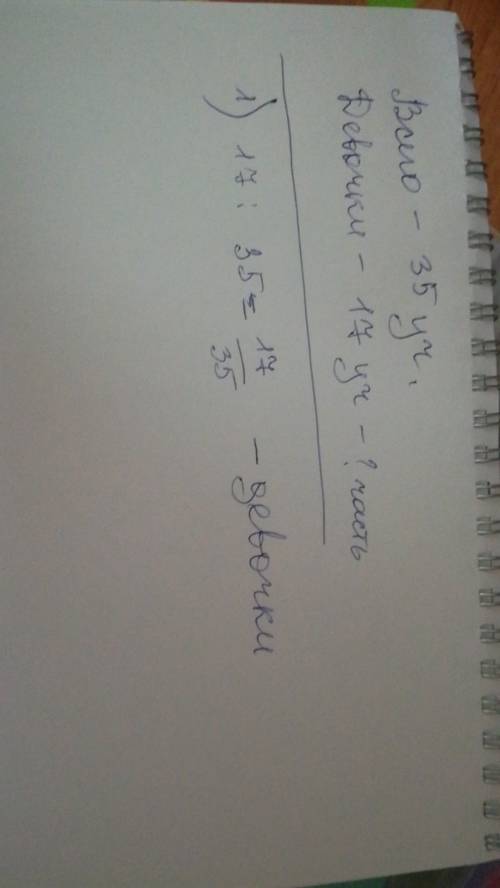 Всего - 35 уч.
Девочки - 17 уч - ? часть
1) 17 : 35 = 17/35 - девочки